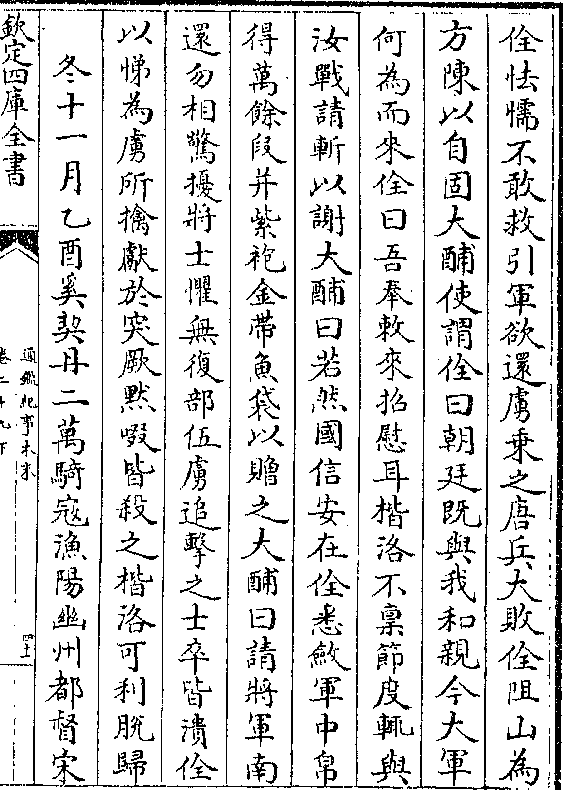 佺怯懦不敢救引軍欲還虜乗之唐兵大敗佺阻山為
方陳以自固大酺使謂佺曰朝廷既與我和親今大軍
何為而來佺曰吾奉敕來招慰耳楷洛不禀節度輒與
汝戰請斬以謝大酺曰若然國信安在佺悉斂軍中帛
得萬餘段并紫袍金帶魚袋以贈之大酺曰請將軍南
還勿相驚擾將士懼無復部伍虜追擊之士卒皆潰佺
以悌為虜所擒獻於突厥黙啜皆殺之楷洛可利脫歸
冬十一月乙酉奚契丹二萬騎寇漁陽幽州都督宋
欽定四庫全書
通鑑紀事本末
卷二十九下
四十